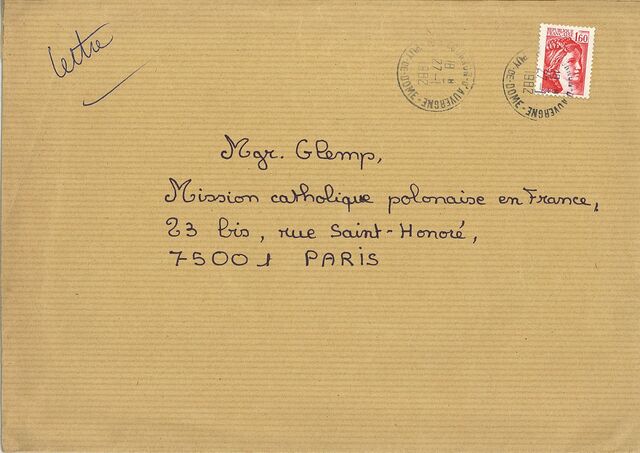 lettre
RÉPUBLIQUE FRANÇAISE
1,60
D'AUVERGNE
PUY-DE-DOME
18 H
27-1
1982
D'AUVERGNE
PUY-DE-DOME
27-1
1982
Mgr. Glemp,
Mission catholique polonaise en France,
23 bis, rue Saint-Honoré,
75001 PARIS